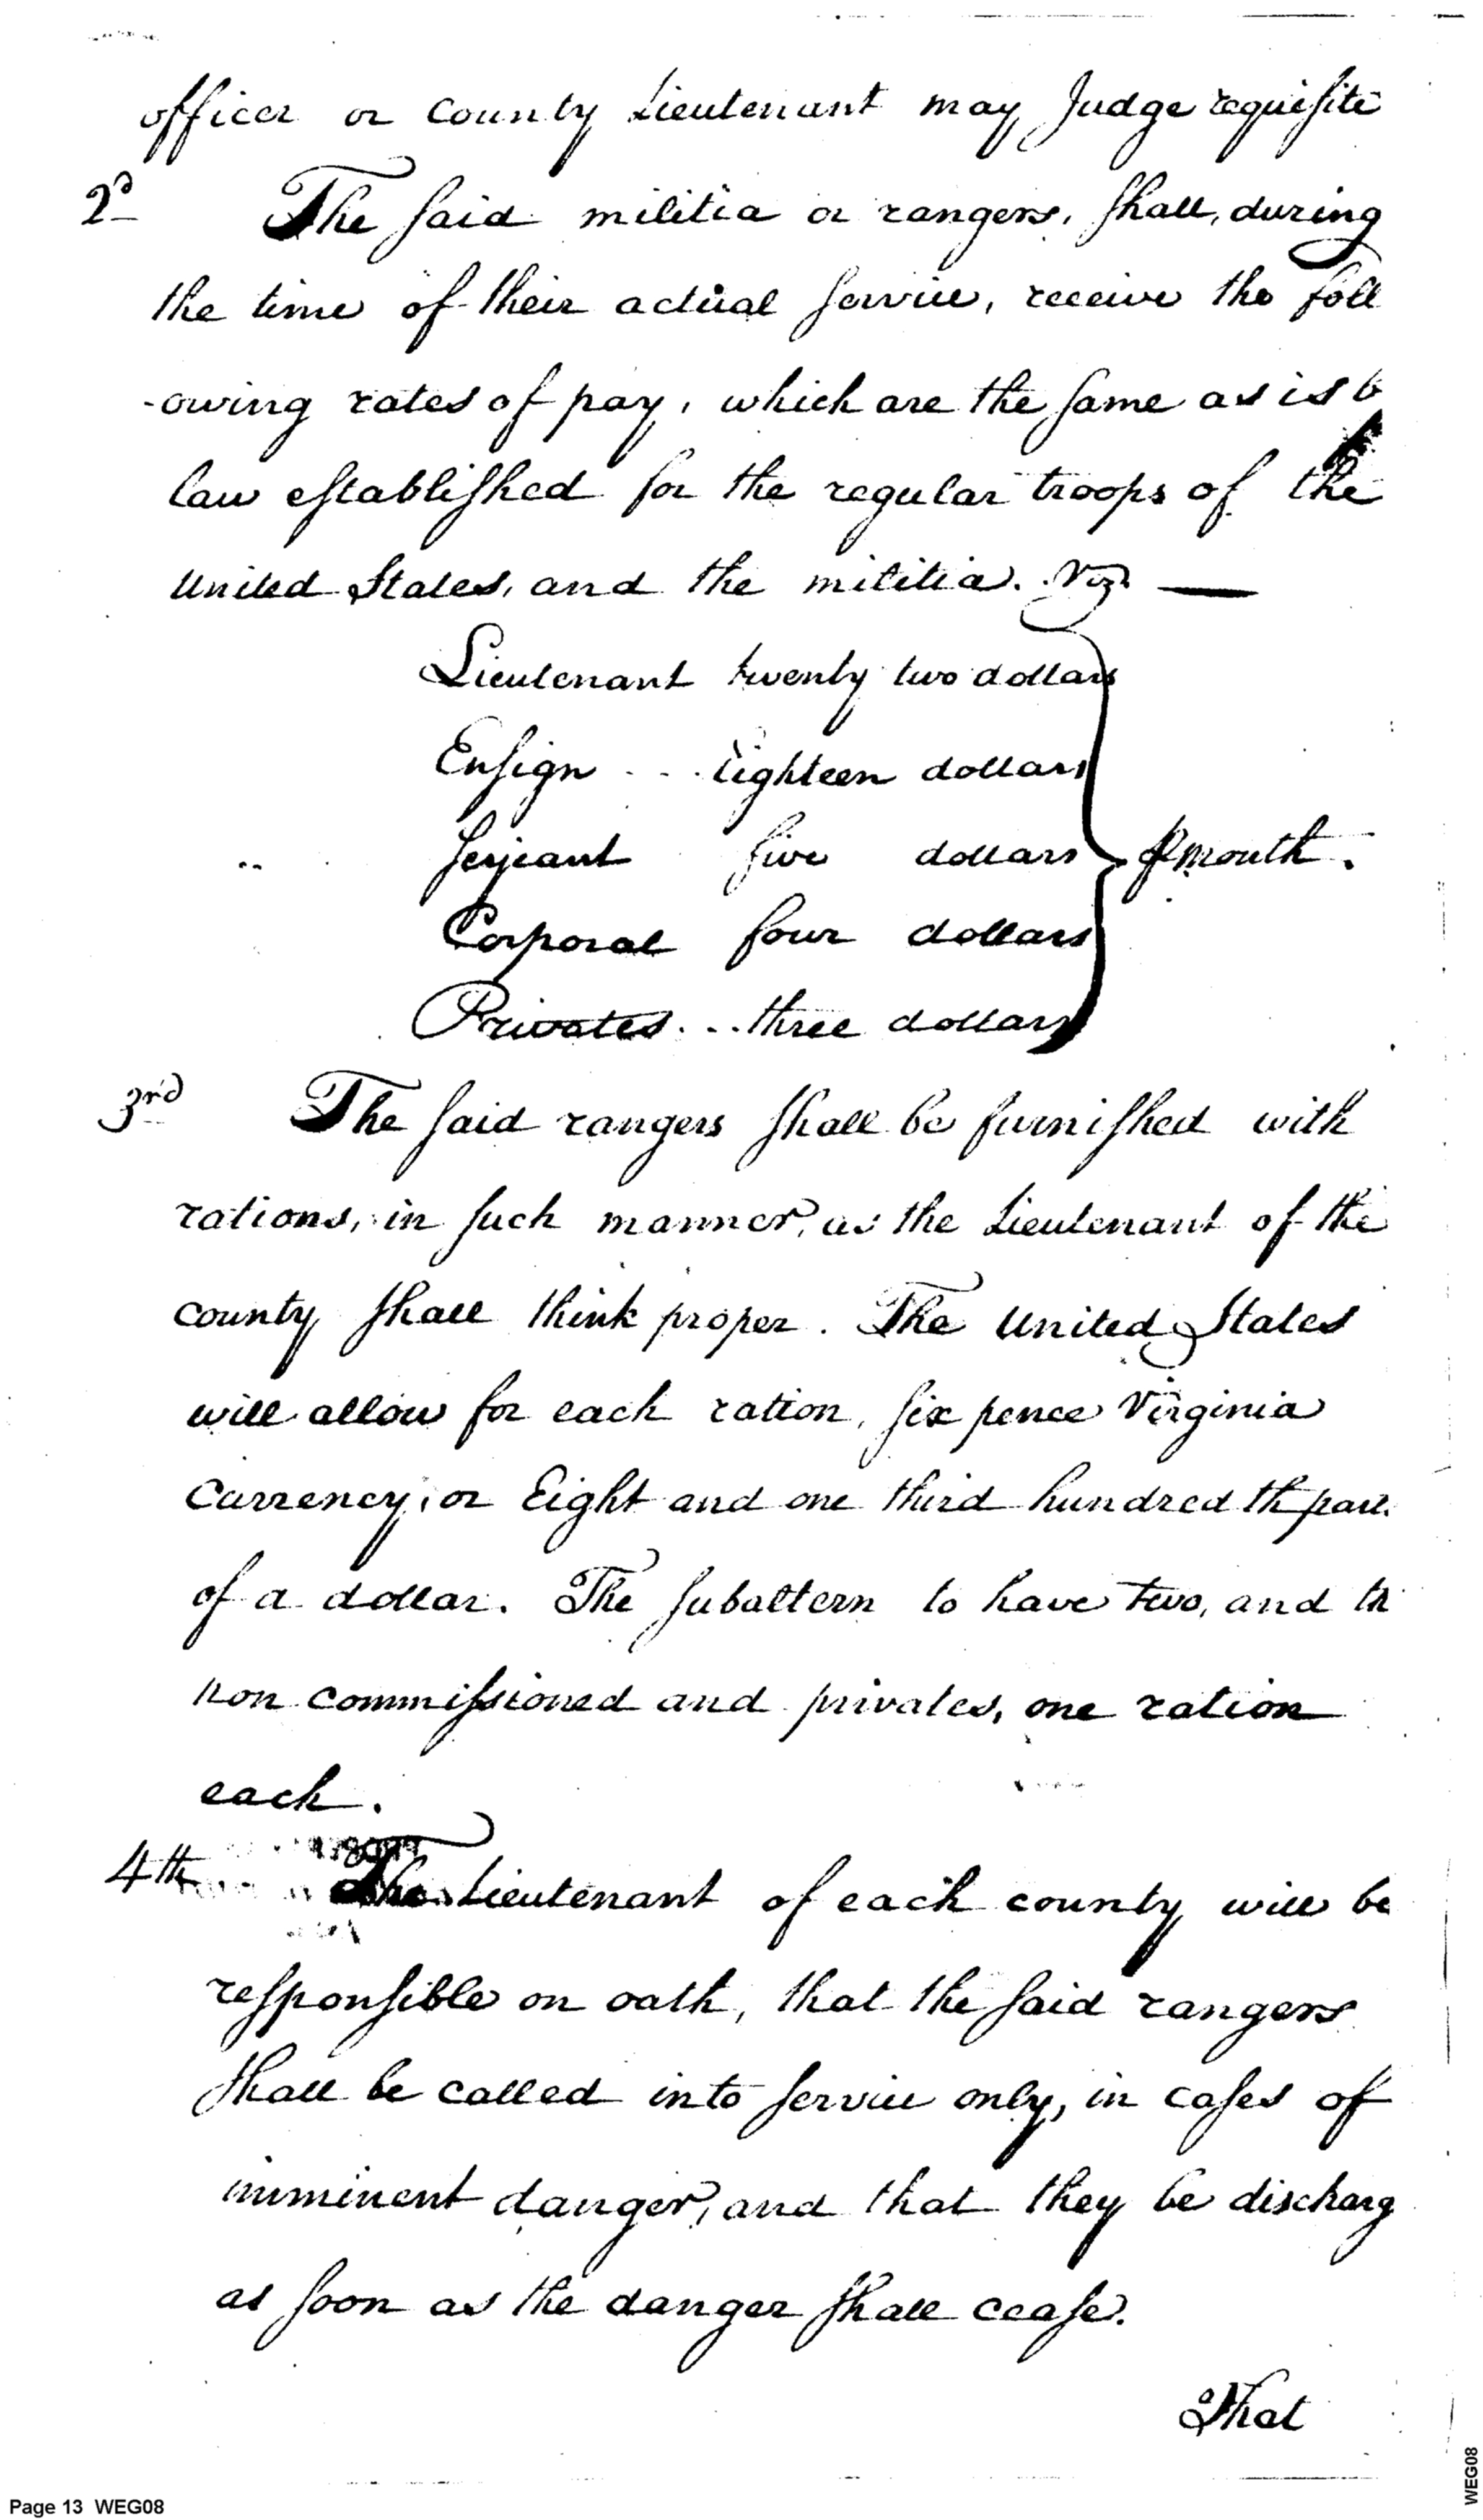 officer or county Lieutenant may Judge requisite
2d The said militia or rangers, shall, during
the time of their actual service, receive the foll
-owing rates of pay, which are the same as is b
law established for the regular troops of the
United States, and the militia. Viz. —
Lieutenant twenty two dollars
Ensign ... Eighteen dollars
Serjeant five dollars month.
Corporal four dollars
Privates ... three dollars
3rd The said rangers shall be furnished with
rations, in such manner, as the Lieutenant of the
county shall think proper. The United States
will allow for each ration, six pence Virginia
Currency, or Eight and one third hundredth part
of a dollar. The subaltern to have two, and th
non commissioned and privates, one ration
each.
4th The Lieutenant of each county will be
responsible on oath, that the said rangers
shall be called into service only, in cases of
imminent danger, and that they be discharg
as soon as the danger shall cease.
That
Page 13 WEG08
WEG08